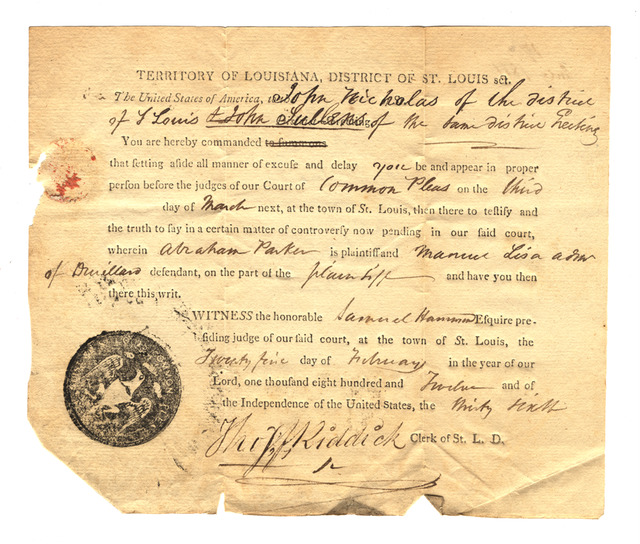 TERRITORY OF LOUISIANA, DISTRICT OF ST. LOUIS sct.
The United States of America, to John Nicholas of the district
of S Louis & John Sullens of the same district Greeting
You are hereby commanded to summons
that setting aside all manner of excuse and delay you be and appear in proper
person before the judges of our Court of Common Pleas on the third
day of March next, at the town of St. Louis, then there to testify and
the truth to say in a certain matter of controversy now pending in our said court,
wherein Abraham Parker is plaintiff and Manuel Lisa admr
of Drouillard defendant, on the part of the plaintiff and have you then
there this writ.
WITNESS the honorable Samuel Hammond Esquire pre-
siding judge of our said court, at the town of St. Louis, the
Twenty five day of February in the year of our
Lord, one thousand eight hundred and Twelve and of
the Independence of the United States, the thirty sixth
Thos F Riddick Clerk of St. L. D.